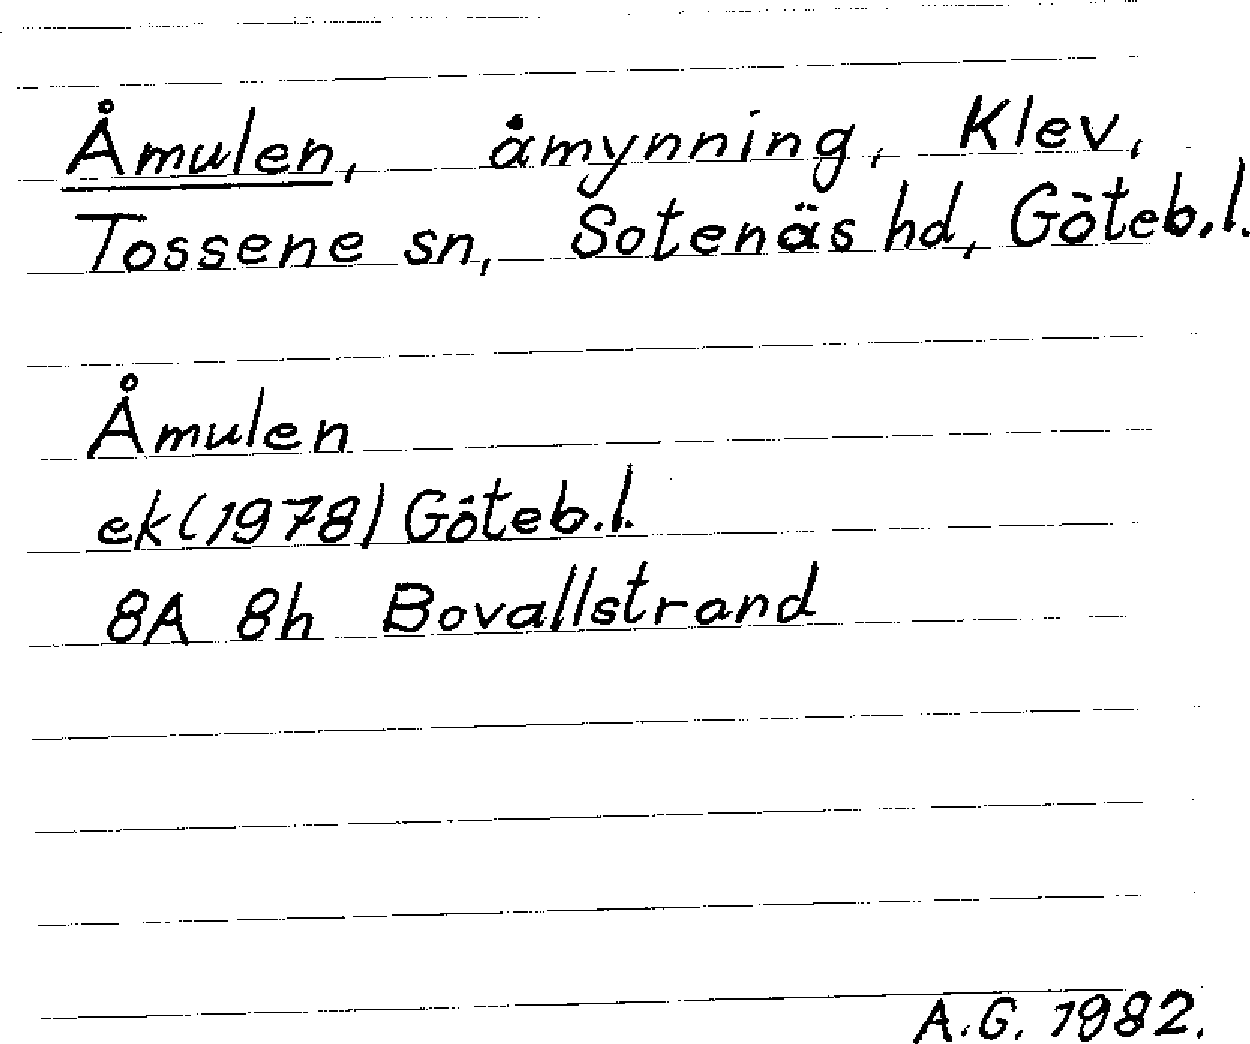 Åmulen, åmynning, Klev,
Tossene sn, Sotenäs hd, Göteb.l.
Åmulen
ek(1978) Göteb.l.
8A 8h Bovallstrand
A.G. 1982.